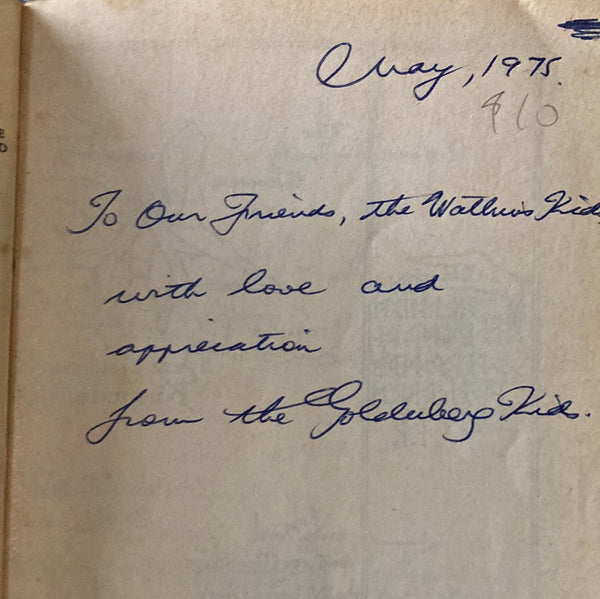 May, 1975.
$10
To Our Friends, the Watkins Kids,
with love and
appreciation
from the Goldenberg Kids.